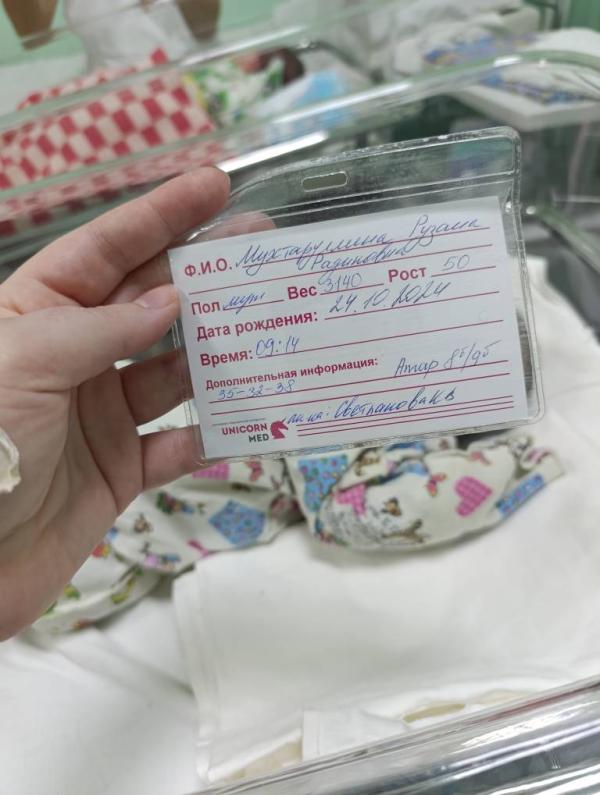 Ф.И.О. Мухтаруллина Рузана
Радиновна
Пол муж Вес 3140 Рост 50
Дата рождения: 24.10.2024
Время: 09:14
Дополнительная информация:
35-32-38 Апгар 8б/9б
UNICORN MED Светлановна